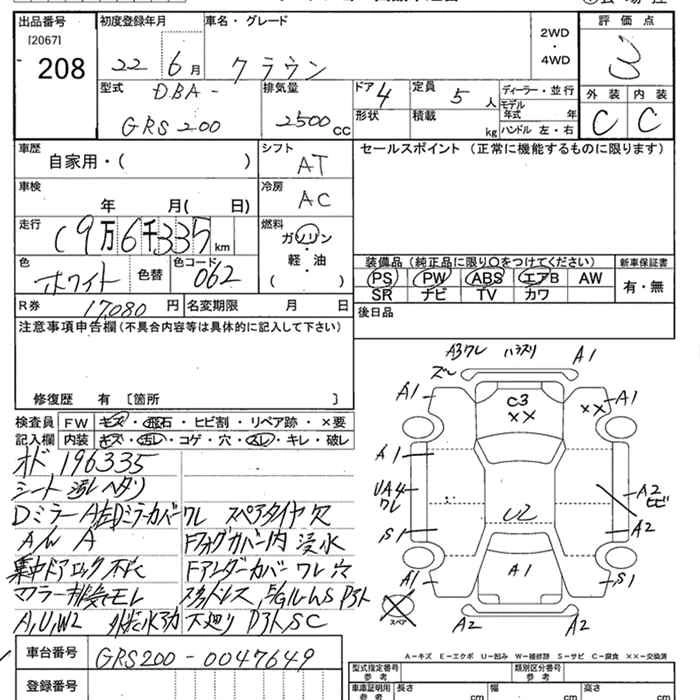 出品番号 初度登録年月 車名・グレード 評価点
[2067]
208
22 6月 クラウン
2WD
・
4WD
3
型式 排気量 ドア 4 定員 5人 ディーラー・並行 外装 内装
DBA-
GRS200
2500cc
形状 積載 kg
モデル年式 年
ハンドル 左・右
C C
車歴 自家用・( )
シフト AT
セールスポイント(正常に機能するものに限ります)
車検 年 月( 日)
冷房 AC
走行 19万6千335km
燃料 ガソリン・軽・油 ( )
色 ホワイト 色替 色コード 062
装備品(純正品に限り○をつけてください) 新車保証書
PS PW ABS エアB AW 有・無
SR ナビ TV カワ
R券 17,080円 名変期限 月 日
後日品
注意事項申告欄(不具合内容等は具体的に記入して下さい)
修復歴 有 〔箇所
検査員 FW キズ・飛石・ヒビ割・リペア跡・×要
記入欄 内装 キズ・汚レ・コゲ・穴・スレ・キレ・破レ
オド 196335
シート ヘタリ
Dミラー A 左Dミラーカバーワレ スペアタイヤ欠
A/W A Fフォグカバー内 浸水
集中ドアロック不良 Fアンダーカバー ワレ 穴
マフラー排気モレ
A,U,W2 下廻り
A3ワレ ハラスリ A1
ズレ
A1 C3 ×× ×× A1
A1
UA4
ワレ
S1 U2 A2
ヒビ
A2
A1 A1 S1
スペア A2 A2
A-キズ E-エクボ U-凹み W-補修跡 S-サビ C-腐食 ××-交換済
車台番号 GRS200-0047649
登録番号
型式指定番号 参考 類別区分番号 参考
車庫証明用 参考 長さ cm 幅 cm 高さ cm